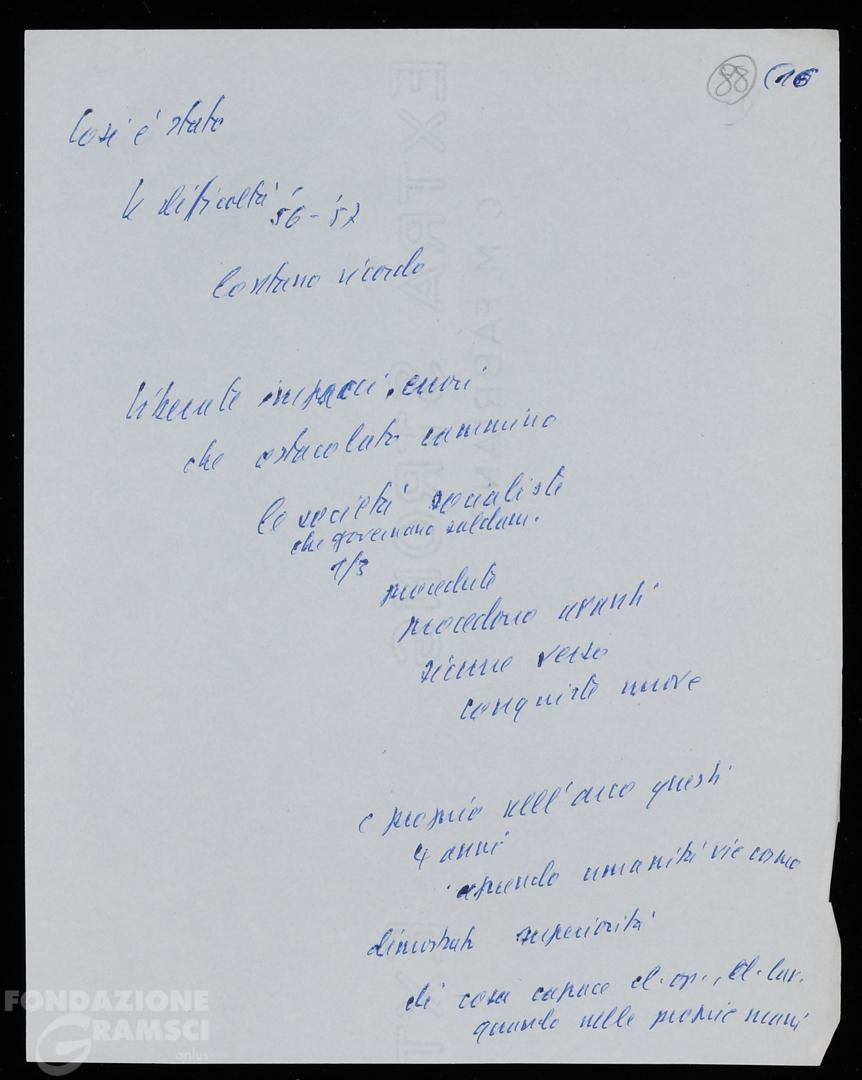 88 (16
Così è stato
le difficoltà '56-'57
Costano ricordo
liberate impacci, errori
che ostacolato cammino
le società socialiste
che governano saldam.
1/3
procedute
procedono avanti
sicure verso
conquiste nuove
e proprio nell'arco questi
4 anni
aprendo umanità vie cosmo
dimostrato superiorità
di cosa capace cl. op., cl. lav.
quando nelle proprie mani
EXTRA STRONG
C.M. FABRIANO
EXT
FONDAZIONE
GRAMSCI
onlus